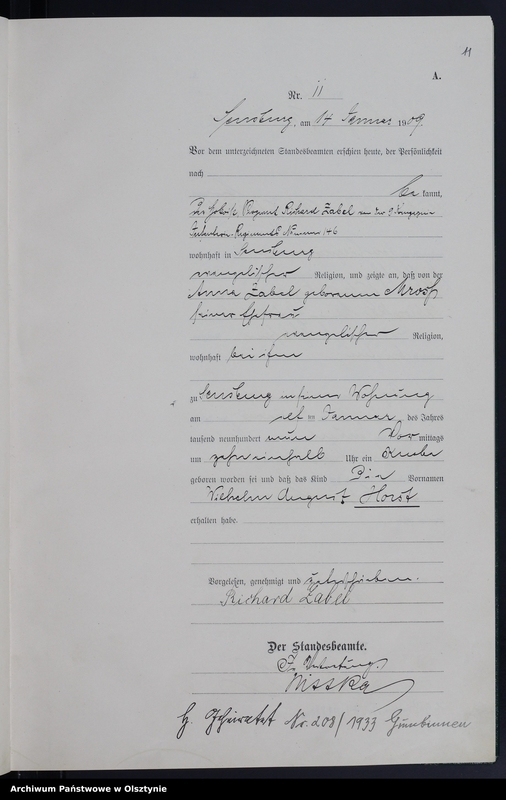 11
A.
Nr. 11
Sensburg, am 14 Januar 1909.
Vor dem unterzeichneten Standesbeamten erschien heute, der Persönlichkeit
nach
be kannt,
Richard Zabel von der 9 Kompagnie
Infanterie-Regiments Nummer 146
wohnhaft in Sensburg
evangelischer Religion, und zeigte an, daß von der
Anna Zabel geborenen Mross
seiner Ehefrau
evangelischer Religion,
wohnhaft bei ihm
zu Sensburg in seiner Wohnung
am elf ten Januar des Jahres
tausend neunhundert neun Vor mittags
um zehneinhalb Uhr ein Knabe
geboren worden sei und daß das Kind die Vornamen
Wilhelm August Horst
erhalten habe.
Vorgelesen, genehmigt und unterschrieben.
Richard Zabel
Der Standesbeamte.
In Vertretung.
Nisska
Geheiratet Nr. 208/1933 Gumbinnen
Archiwum Państwowe w Olsztynie